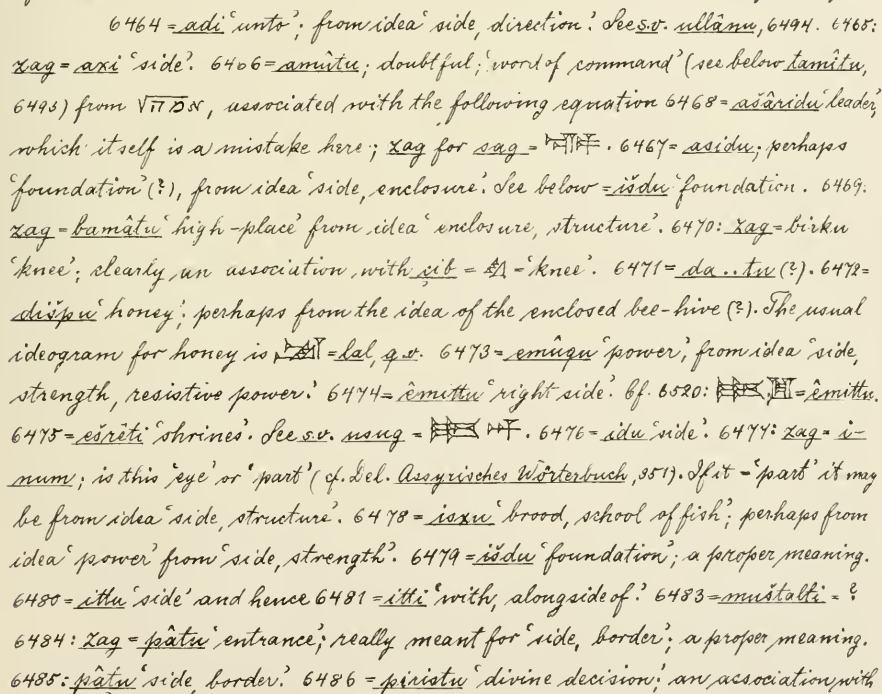 6464 = adi 'unto'; from idea 'side, direction.' See s.v. ullânu, 6494. 6465:
zag = axi 'side'. 6466 = amûtu; doubtful; 'word of command' (see below tamîtu,
6495) from √, associated with the following equation 6468 = ašâridu 'leader,'
which itself is a mistake here; zag for sag = . 6467 = asidu; perhaps
'foundation' (?), from idea 'side, enclosure.' See below = išdu 'foundation. 6469:
zag = bamâtu 'high-place' from idea 'enclosure, structure'. 6470: zag = birku
'knee'; clearly an association with çib = = 'knee'. 6471 = da..tu (?). 6472 =
dišpu 'honey'; perhaps from the idea of the enclosed bee-hive (?). The usual
ideogram for honey is = lal, q.v. 6473 = emûqu 'power,' from idea 'side,
strength, resistive power.' 6474 = êmittu 'right side.' Cf. 6520: = êmittu.
6475 = ešrêti 'shrines'. See s.v. usug = . 6476 = idu 'side'. 6477: zag = i-
num; is this 'eye' or 'part' (cf. Del. Assyrisches Wörterbuch, 351). If it = 'part' it may
be from idea 'side, structure'. 6478 = isxu 'brood, school of fish'; perhaps from
idea 'power' from 'side, strength'. 6479 = išdu 'foundation'; a proper meaning.
6480 = ittu 'side' and hence 6481 = itti 'with, alongside of.' 6483 = muštalti = ?
6484: zag = pâtu 'entrance'; really meant for 'side, border'; a proper meaning.
6485: pâtu 'side, border.' 6486 = piristu 'divine decision'; an association with